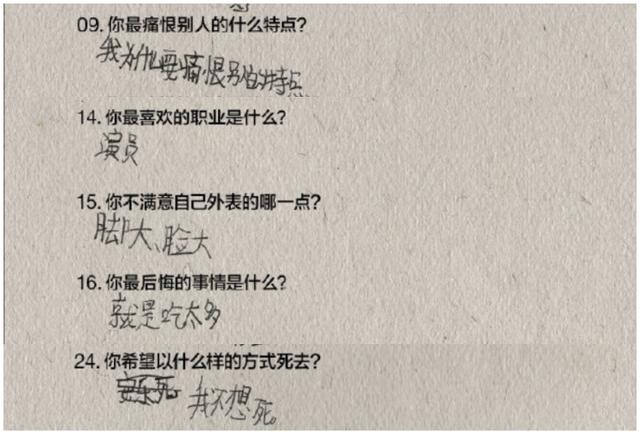 09. 你最痛恨别人的什么特点?
我为什么要痛恨别人的特点
14. 你最喜欢的职业是什么?
演员
15. 你不满意自己外表的哪一点?
脚大、脸大
16. 你最后悔的事情是什么?
就是吃太多
24. 你希望以什么样的方式死去?
安乐死 我不想死。